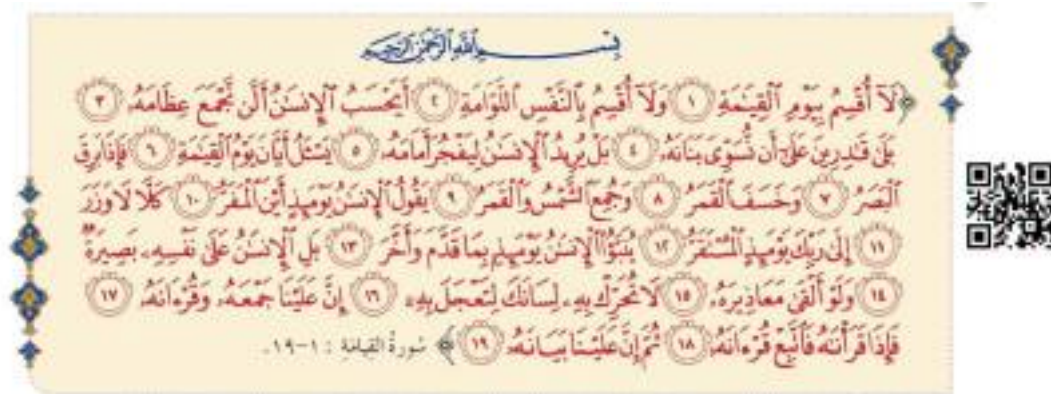 بِسْمِ ٱللَّهِ ٱلرَّحْمَٰنِ ٱلرَّحِيمِ
﴿لَآ أُقْسِمُ بِيَوْمِ ٱلْقِيَٰمَةِ ١ وَلَآ أُقْسِمُ بِٱلنَّفْسِ ٱللَّوَّامَةِ ٢ أَيَحْسَبُ ٱلْإِنسَٰنُ أَلَّن نَّجْمَعَ عِظَامَهُۥ ٣
بَلَىٰ قَٰدِرِينَ عَلَىٰٓ أَن نُّسَوِّيَ بَنَانَهُۥ ٤ بَلْ يُرِيدُ ٱلْإِنسَٰنُ لِيَفْجُرَ أَمَامَهُۥ ٥ يَسْـَٔلُ أَيَّانَ يَوْمُ ٱلْقِيَٰمَةِ ٦ فَإِذَا بَرِقَ
ٱلْبَصَرُ ٧ وَخَسَفَ ٱلْقَمَرُ ٨ وَجُمِعَ ٱلشَّمْسُ وَٱلْقَمَرُ ٩ يَقُولُ ٱلْإِنسَٰنُ يَوْمَئِذٍ أَيْنَ ٱلْمَفَرُّ ١٠ كَلَّا لَا وَزَرَ
١١ إِلَىٰ رَبِّكَ يَوْمَئِذٍ ٱلْمُسْتَقَرُّ ١٢ يُنَبَّؤُاْ ٱلْإِنسَٰنُ يَوْمَئِذٍۭ بِمَا قَدَّمَ وَأَخَّرَ ١٣ بَلِ ٱلْإِنسَٰنُ عَلَىٰ نَفْسِهِۦ بَصِيرَةٌ
١٤ وَلَوْ أَلْقَىٰ مَعَاذِيرَهُۥ ١٥ لَا تُحَرِّكْ بِهِۦ لِسَانَكَ لِتَعْجَلَ بِهِۦٓ ١٦ إِنَّ عَلَيْنَا جَمْعَهُۥ وَقُرْءَانَهُۥ ١٧
فَإِذَا قَرَأْنَٰهُ فَٱتَّبِعْ قُرْءَانَهُۥ ١٨ ثُمَّ إِنَّ عَلَيْنَا بَيَانَهُۥ ١٩﴾ سُورَةُ القِيَامَة : ١-١٩.